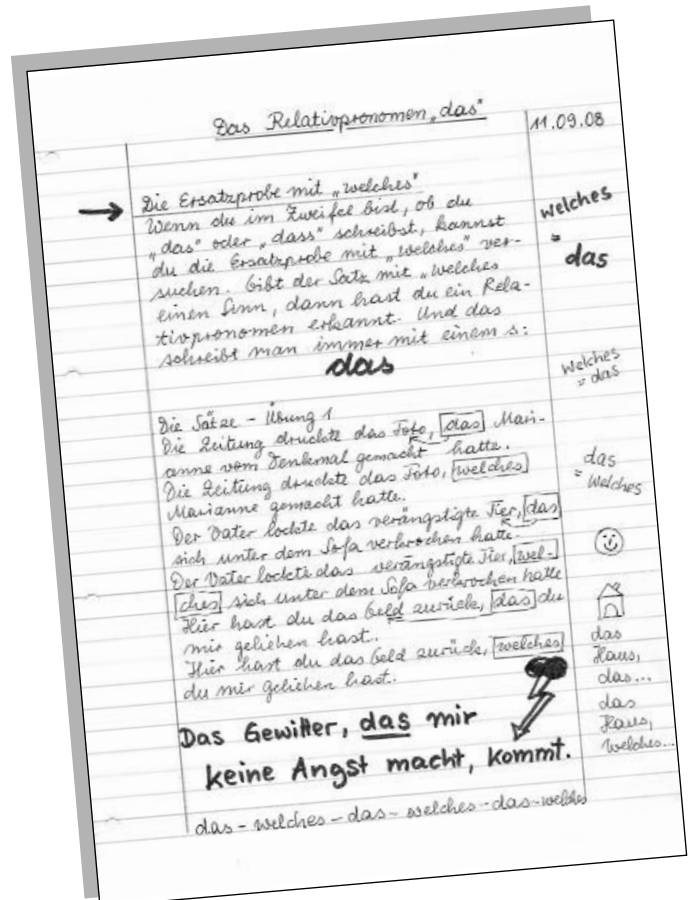 Das Relativpronomen „das"
11.09.08
Die Ersatzprobe mit „welches"
Wenn du im Zweifel bist, ob du
„das" oder „dass" schreibst, kannst
du die Ersatzprobe mit „welches" ver-
suchen. Gibt der Satz mit „welches
einen Sinn, dann hast du ein Rela-
tivpronomen erkannt. Und das
schreibt man immer mit einem s:
das
welches
=
das
Welches
= das
Die Sätze - Übung 1
Die Zeitung druckte das Foto, das Mari-
anne vom Denkmal gemacht hatte.
Die Zeitung druckte das Foto, welches
Marianne gemacht hatte.
Der Vater lockte das verängstigte Tier, das
sich unter dem Sofa verkrochen hatte.
Der Vater lockte das verängstigte Tier, wel-
ches sich unter dem Sofa verkrochen hatte
Hier hast du das Geld zurück, das du
mir geliehen hast.
Hier hast du das Geld zurück, welches
du mir geliehen hast.
das
= welches
das
Haus,
das...
das
Haus,
welches...
Das Gewitter, das mir
keine Angst macht, kommt.
das - welches - das - welches - das - welches